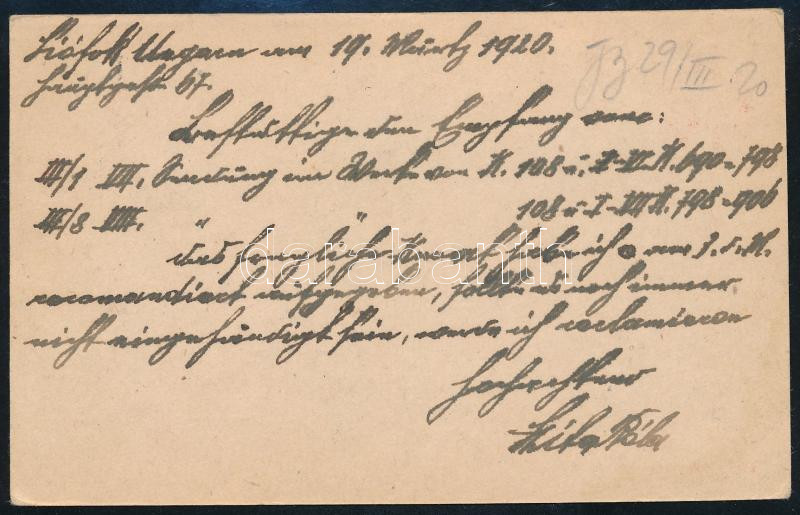 Siófok, Ungarn am 19. Maertz 1920.
Hauptpost 67.
JZ 29/III 20
Bestättige den Empfang von:
III/1 VII. Sendung im Werte von K. 108 u. I-VI K. 690 = 798
III/8 VIII. " " 108 u. I-VII K. 798 = 906
das fragliche habe ich am 3. d. M.
recomandiert aufgegeben, sollte es noch immer
nicht eingehändigt sein, werde ich reclamieren
Hochachtend
Béla
darabanth